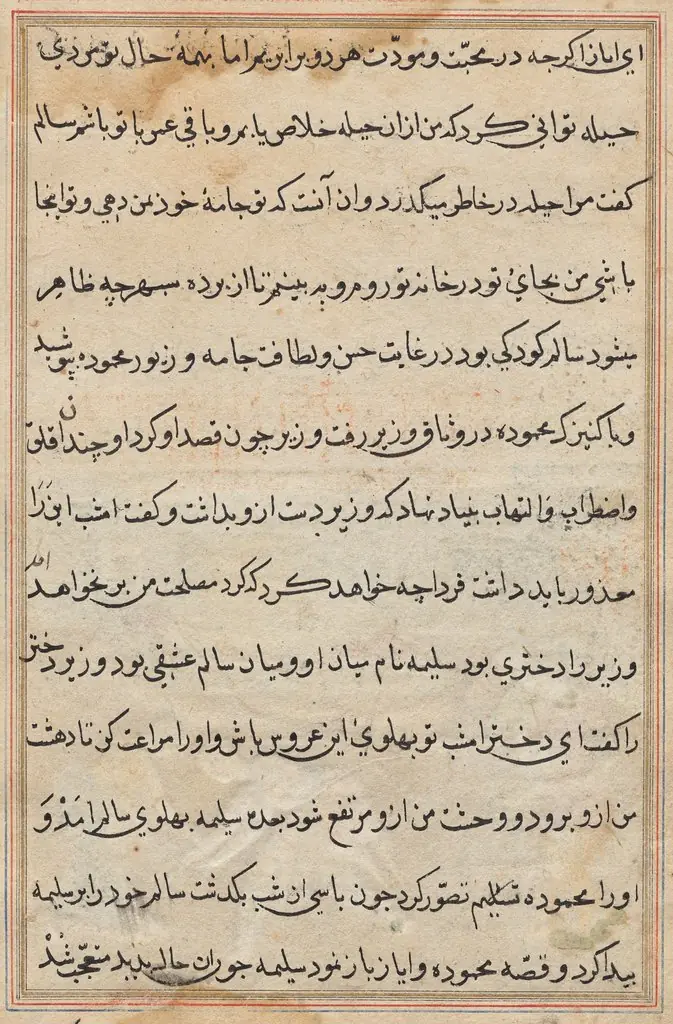 ای ایاز اکرجه در محبّت و مودّت هر دو برابریم اما بهمهٔ حال تو مردی
حیله توانی کرد که من ازان حیله خلاص یابم و باقی عمر با تو باشم سالم
کفت مرا حیله در خاطر میکذرد وان آنست که تو جامهٔ خود بمن دهی و تو اینجا
باشی من بجای تو در خانه تو روم و به بینم تا از برده سبهر چه ظاهر
میشود سالم کودکی بود در غایت حسن و لطافت جامه و زیور محموده بپوشید
و با کنیزک محموده در وثاق وزیر رفت وزیر چون قصد او کرد او چندان قلق
واضطراب والتهاب بنیاد نهاد که وزیر دست ازو بداشت و کفت امشب این را
معذور باید داشت فردا چه خواهد کرد که کرد مصلحت من بر نخواهد امد
وزیر را دختری بود سلیمه نام میان او و میان سالم عشقی بود وزیر دختر
را کفت ای دختر امشب تو بهلوی این عروس باش و او را مراعت کن تا دهشت
من ازو برود و وحشت من ازو مرتفع شود بعده سلیمه بهلوی سالم امد و
او را محموده تسلیم تصوّر کرد جون باسی از شب بکذشت سالم خود را بر سلیمه
بیدا کرد و قصّه محموده و ایاز باز نمود سلیمه جون ان حال بدید متعجّب شد